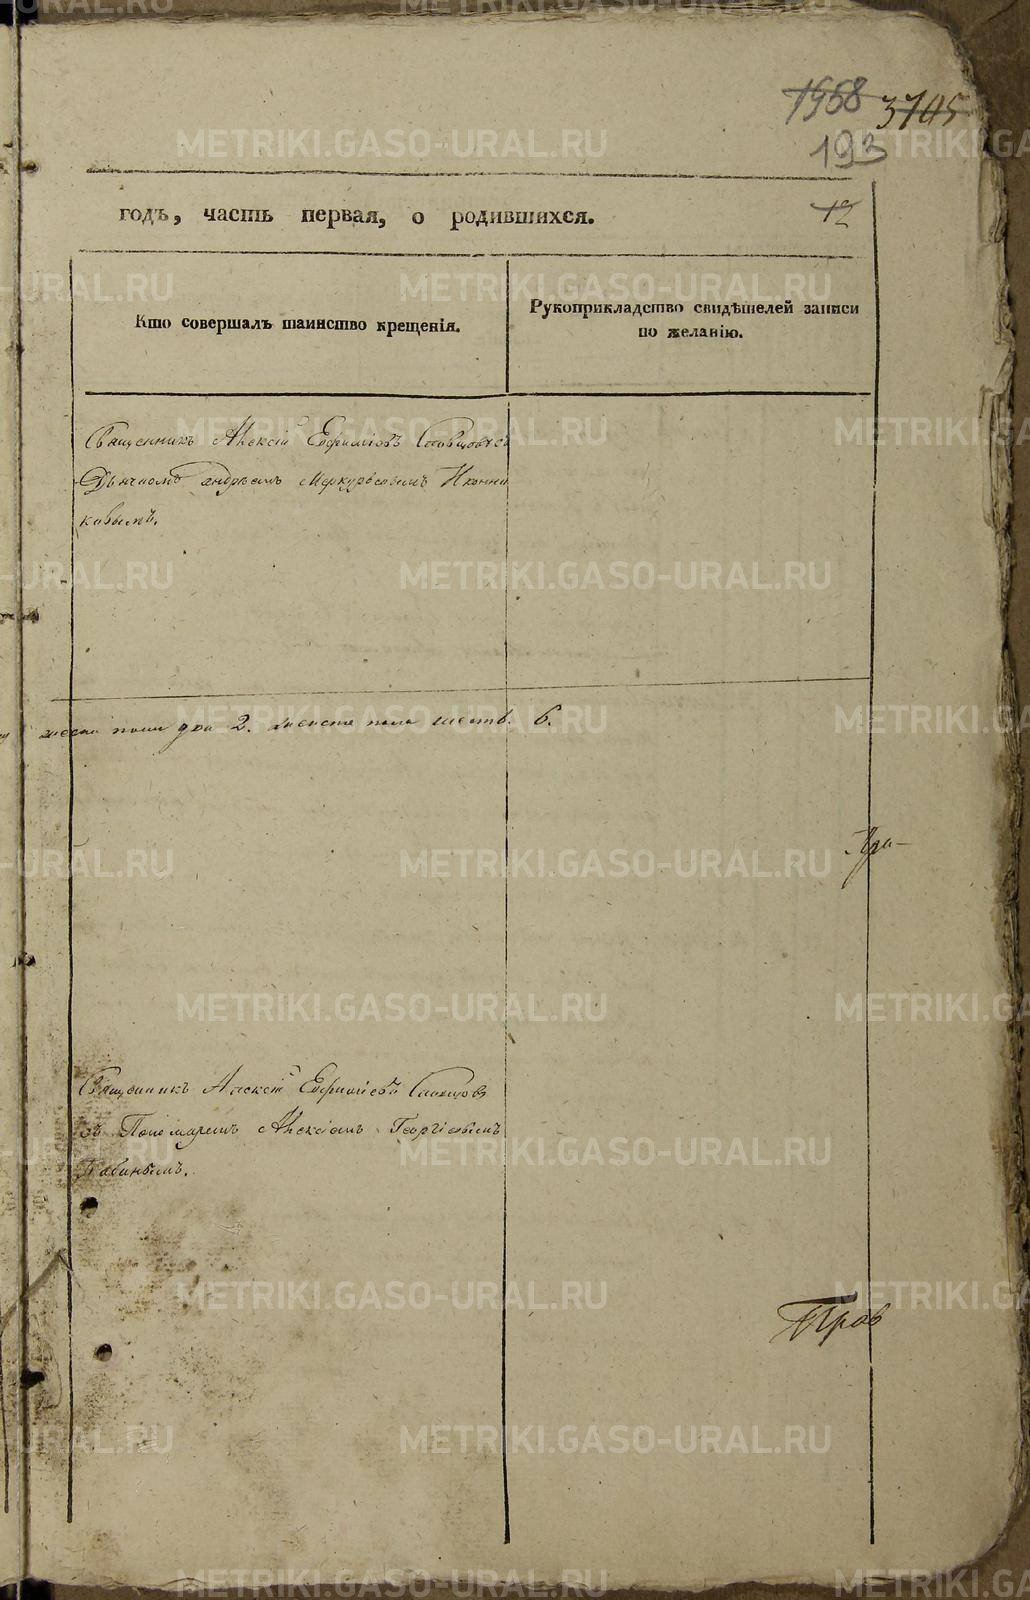 1958 3705
193
годъ, часть первая, о родившихся.
12
Кто совершалъ таинство крещенія.
Рукоприкладство свидѣтелей записи
по желанію.
Священникъ Алексій Евфиміевъ
Дьячкомъ Андреемъ Меркурьевымъ Икони
ковымъ.
пола два 2. женска пола шесть. 6.
Священникъ Алексій Евфиміевъ
съ Пономаремъ Алексіемъ Георгіевымъ
Бабинымъ.
METRIKI.GASO-URAL.RU